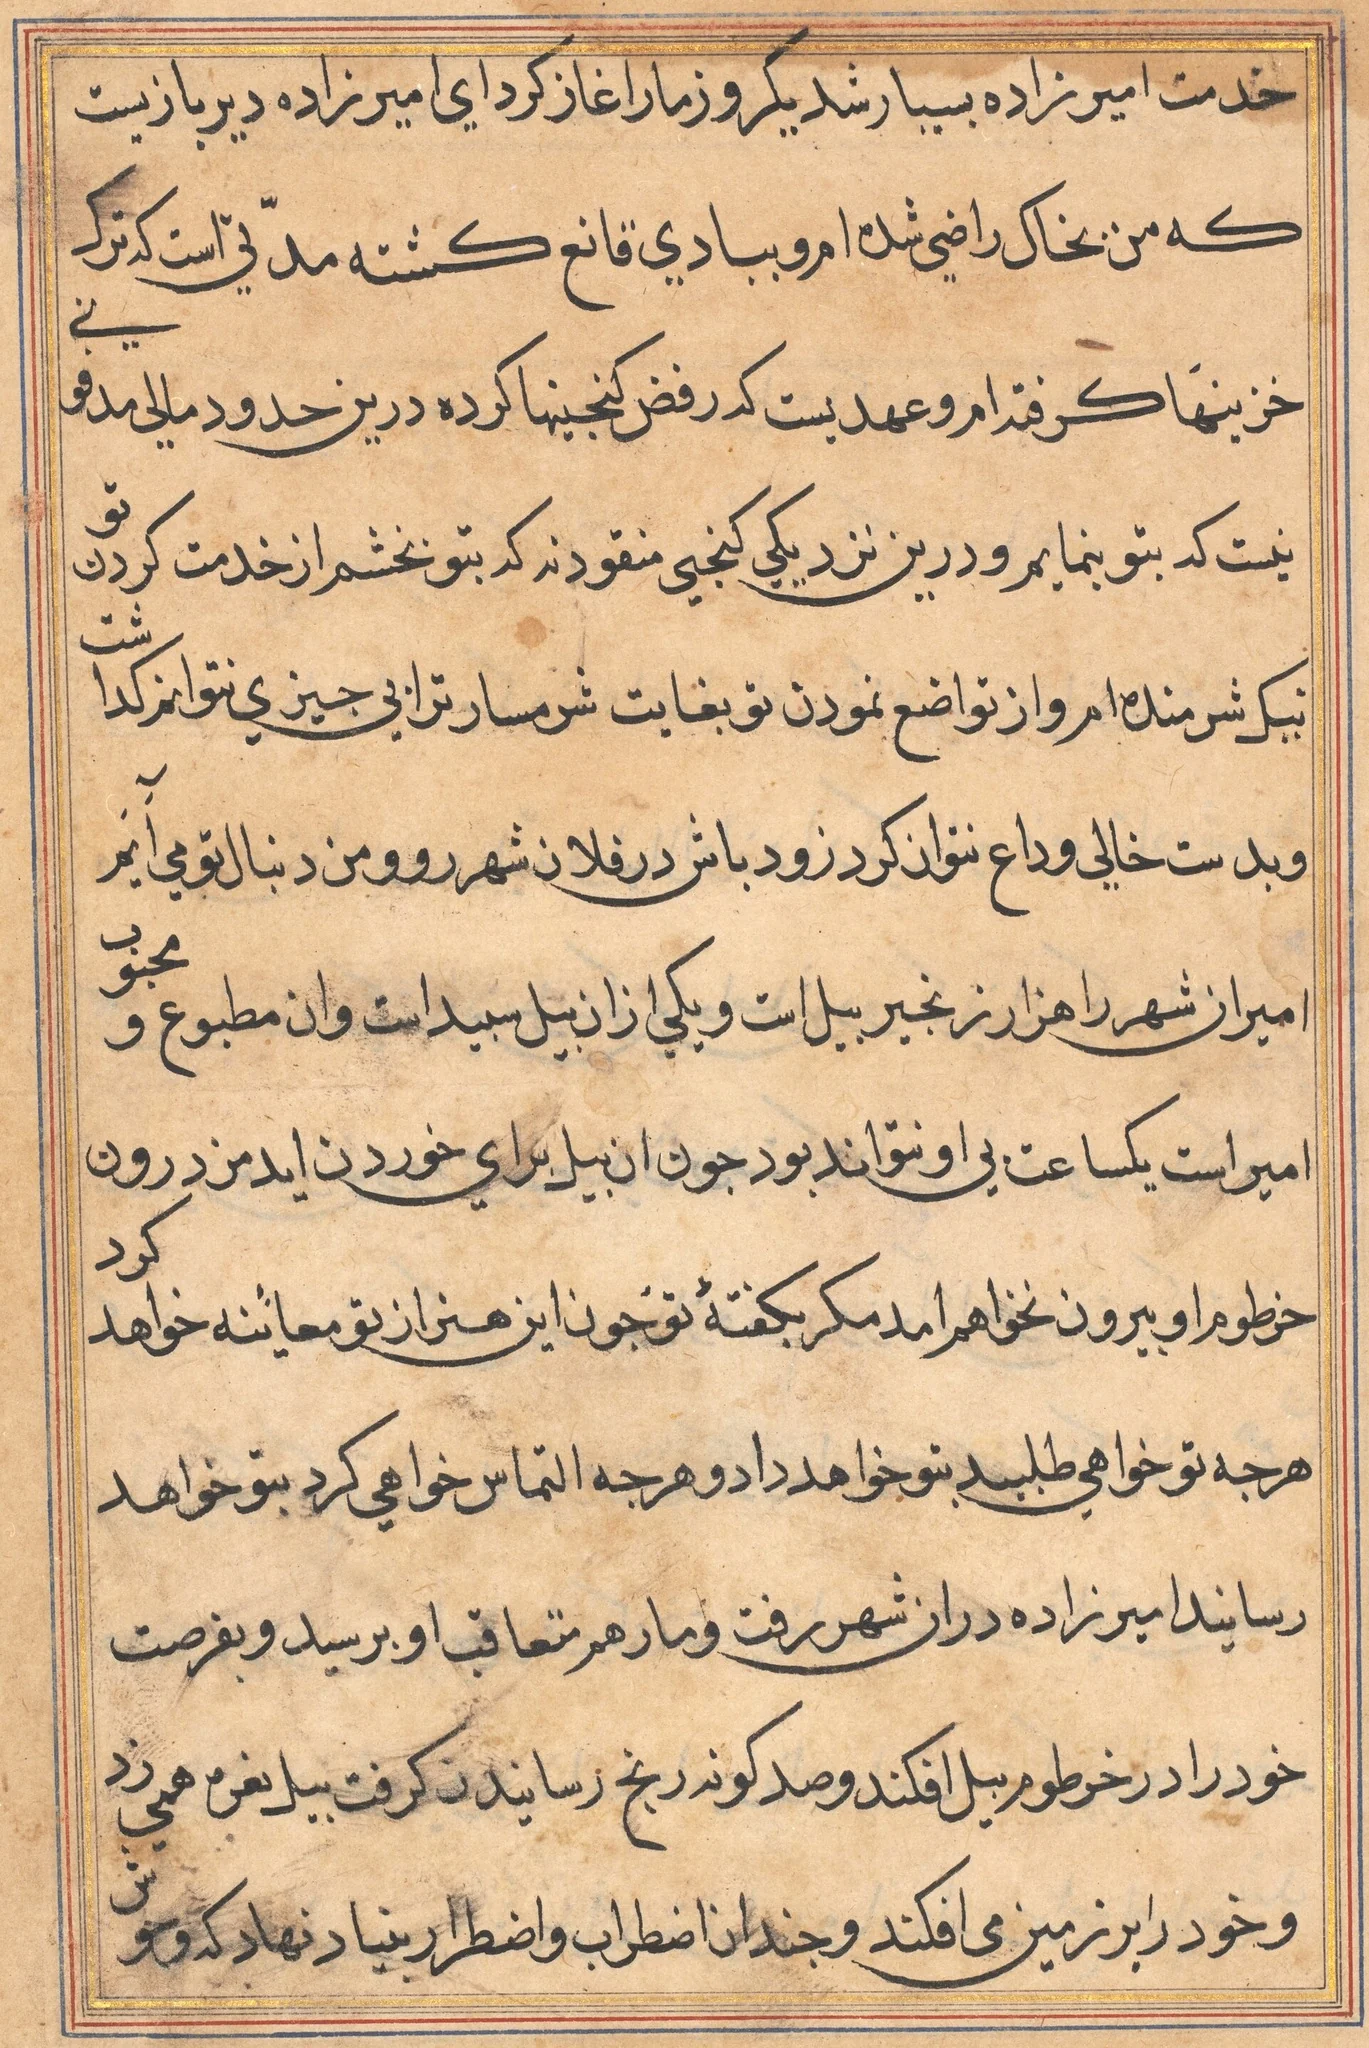 خدمت امیر زاده بسیار شد یکروز مار اغاز کرد ای امیر زاده دیر باز یست
که من بخاک راضی شده ام و ببادی قانع کشته مدّتی است که ترک
خزینها کرفته ام و عهدیست که رفض کنجینها کرده درین حدود مالی مدفو نی
نیست که بتو بنمایم و درین نزدیکی کنجی منقود نه که بتو بخشم از خدمت کردن تو
نیک شرمنده ام و از تواضع نمودن تو بغایت شرمسار ترا بی جیزی نتوانم کذا شت
و بدست خالی وداع نتوان کرد زود باش در فلان شهر رو و من دنبال تو می آیم
امیر ان شهر را هزار زنجیر بیل است و یکی از ان بیل سبید است و ان مطبوع و محبوب
امیر است یکساعت بی او نتواند بود جون ان بیل برای خوردن اید من درون
خرطوم او بیرون نخواهم امد مکر بکفتهٔ تو جون این هنر از تو معائنه خواهد کرد
هرجه تو خواهی طلبید بتو خواهد داد و هرجه التماس خواهی کرد بتو خواهد
رسانید امیر زاده در ان شهر رفت و مار هم متعاقب او برسید و بفرصت
خود را در خرطوم بیل افکند و صد کونه رنج رسانیدن کرفت بیل نعره همی زد
و خود را بر زمین می افکند و جندان اضطراب و اضطرار بنیاد نهاد که وحو ش